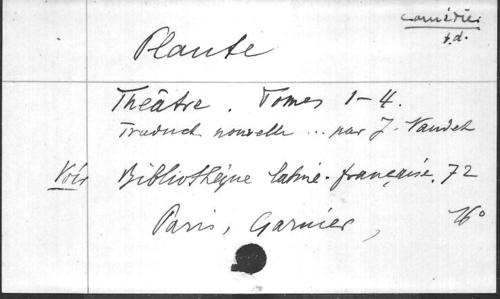 Comédie
s.d.
Plaute
Théâtre. Tomes 1-4.
Traduct. nouvelle ... par J. Naudet
Voir Bibliothèque latine-française. 72
Paris, Garnier, 16°